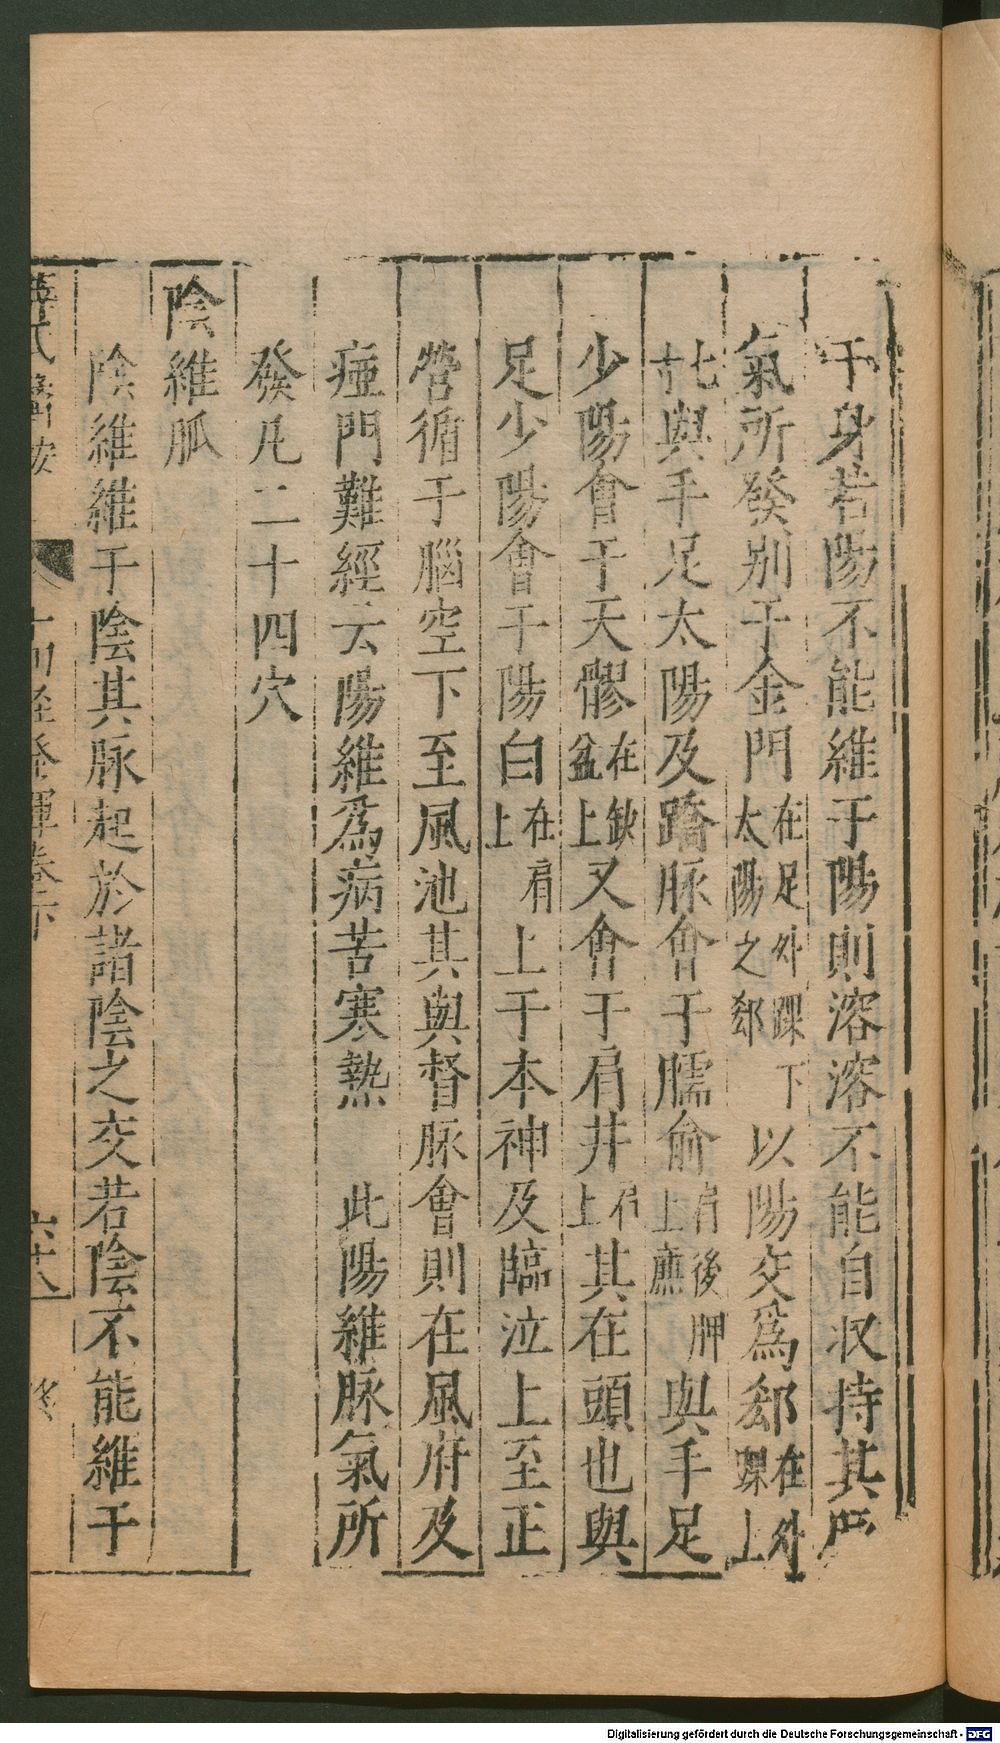 于身若陽不能維于陽則溶溶不能自収持其脈
氣所發别于金門在足外踝下太陽之郄以陽交爲郄在外踝上
七寸與手足太陽及蹻脈會于臑俞肩後胛上廉與手足
少陽會于天髎在缺盆上又會于肩井肩上其在頭也與
足少陽會于陽白在肩上上于本神及臨泣上至正
營循于腦空下至風池其與督脈會則在風府及
瘂門難經云陽維爲病苦寒熱 此陽維脈氣所
發凡二十四穴
陰維脈
陰維維于陰其脈起於諸陰之交若陰不能維于
薛氏醫按 十四經發揮卷下 六十八
Digitalisierung gefördert durch die Deutsche Forschungsgemeinschaft - DFG